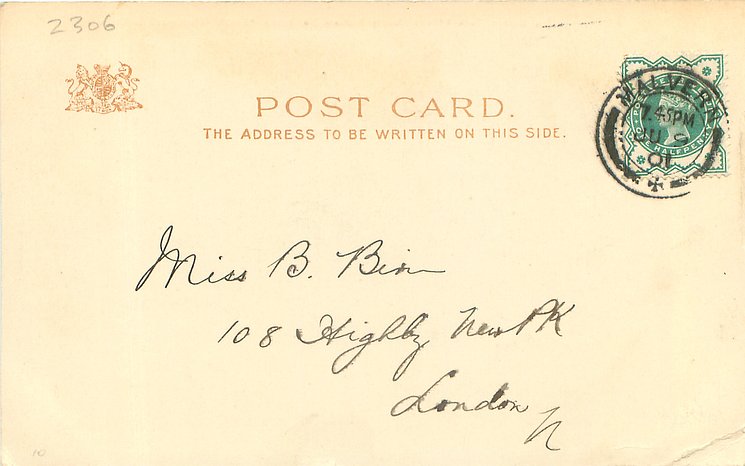 2306
POST CARD.
THE ADDRESS TO BE WRITTEN ON THIS SIDE.
MALVERN
7.45PM
JU
01
POSTAGE
ONE HALFPENNY
Miss B.
108 Highby New PK
London
N
10